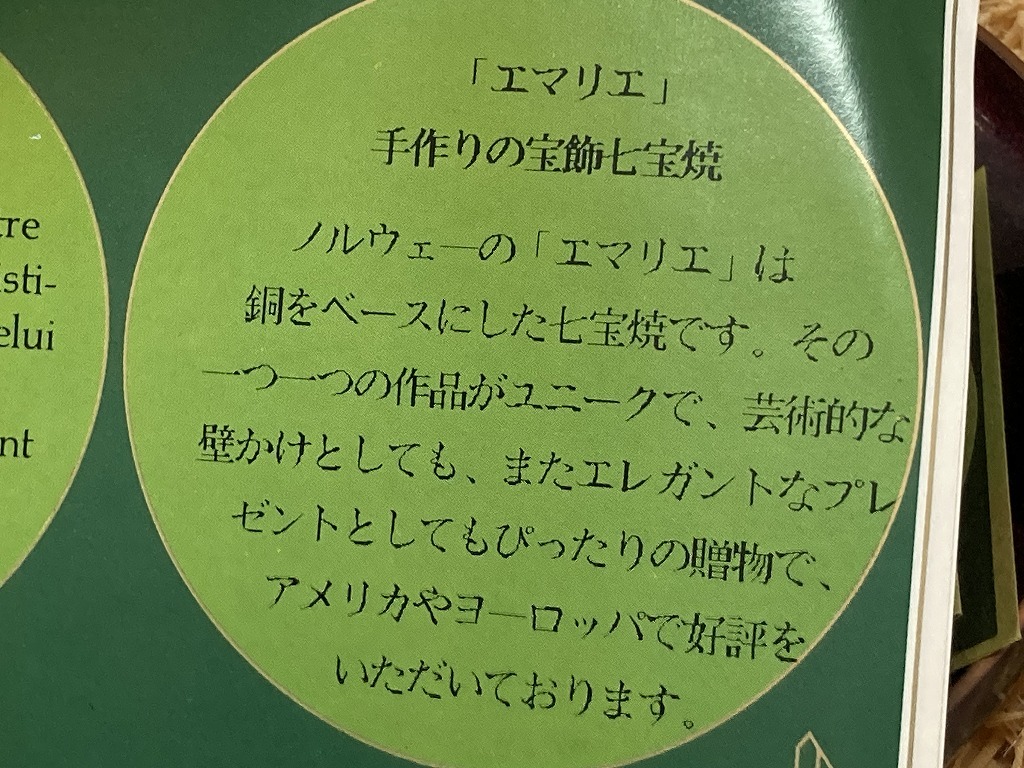 tre
isti-
elui
nt
「エマリエ」
手作りの宝飾七宝焼
ノルウェーの「エマリエ」は
銅をベースにした七宝焼です。その
一つ一つの作品がユニークで、芸術的な
壁かけとしても、またエレガントなプレ
ゼントとしてもぴったりの贈物で、
アメリカやヨーロッパで好評を
いただいております。